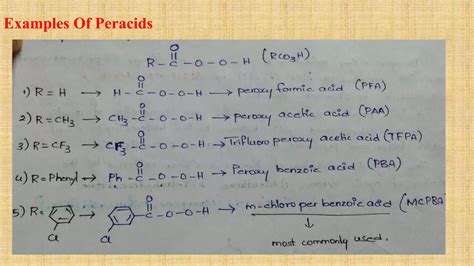 Examples Of Peracids
R - C - O - O - H (RCO3H)
O
1) R = H → H - C - O - O - H → peroxy formic acid (PFA)
O
2) R = CH3 → CH3 - C - O - O - H → peroxy acetic acid (PAA)
O
3) R = CF3 → CF3 - C - O - O - H → Trifluoro peroxy acetic acid (TFPA)
O
4) R = Phenyl → Ph - C - O - O - H → Peroxy benzoic acid (PBA)
O
5) R = → C - O - O - H → m-chloro per benzoic acid (MCPBA)
O
Cl Cl
↓
most commonly used.